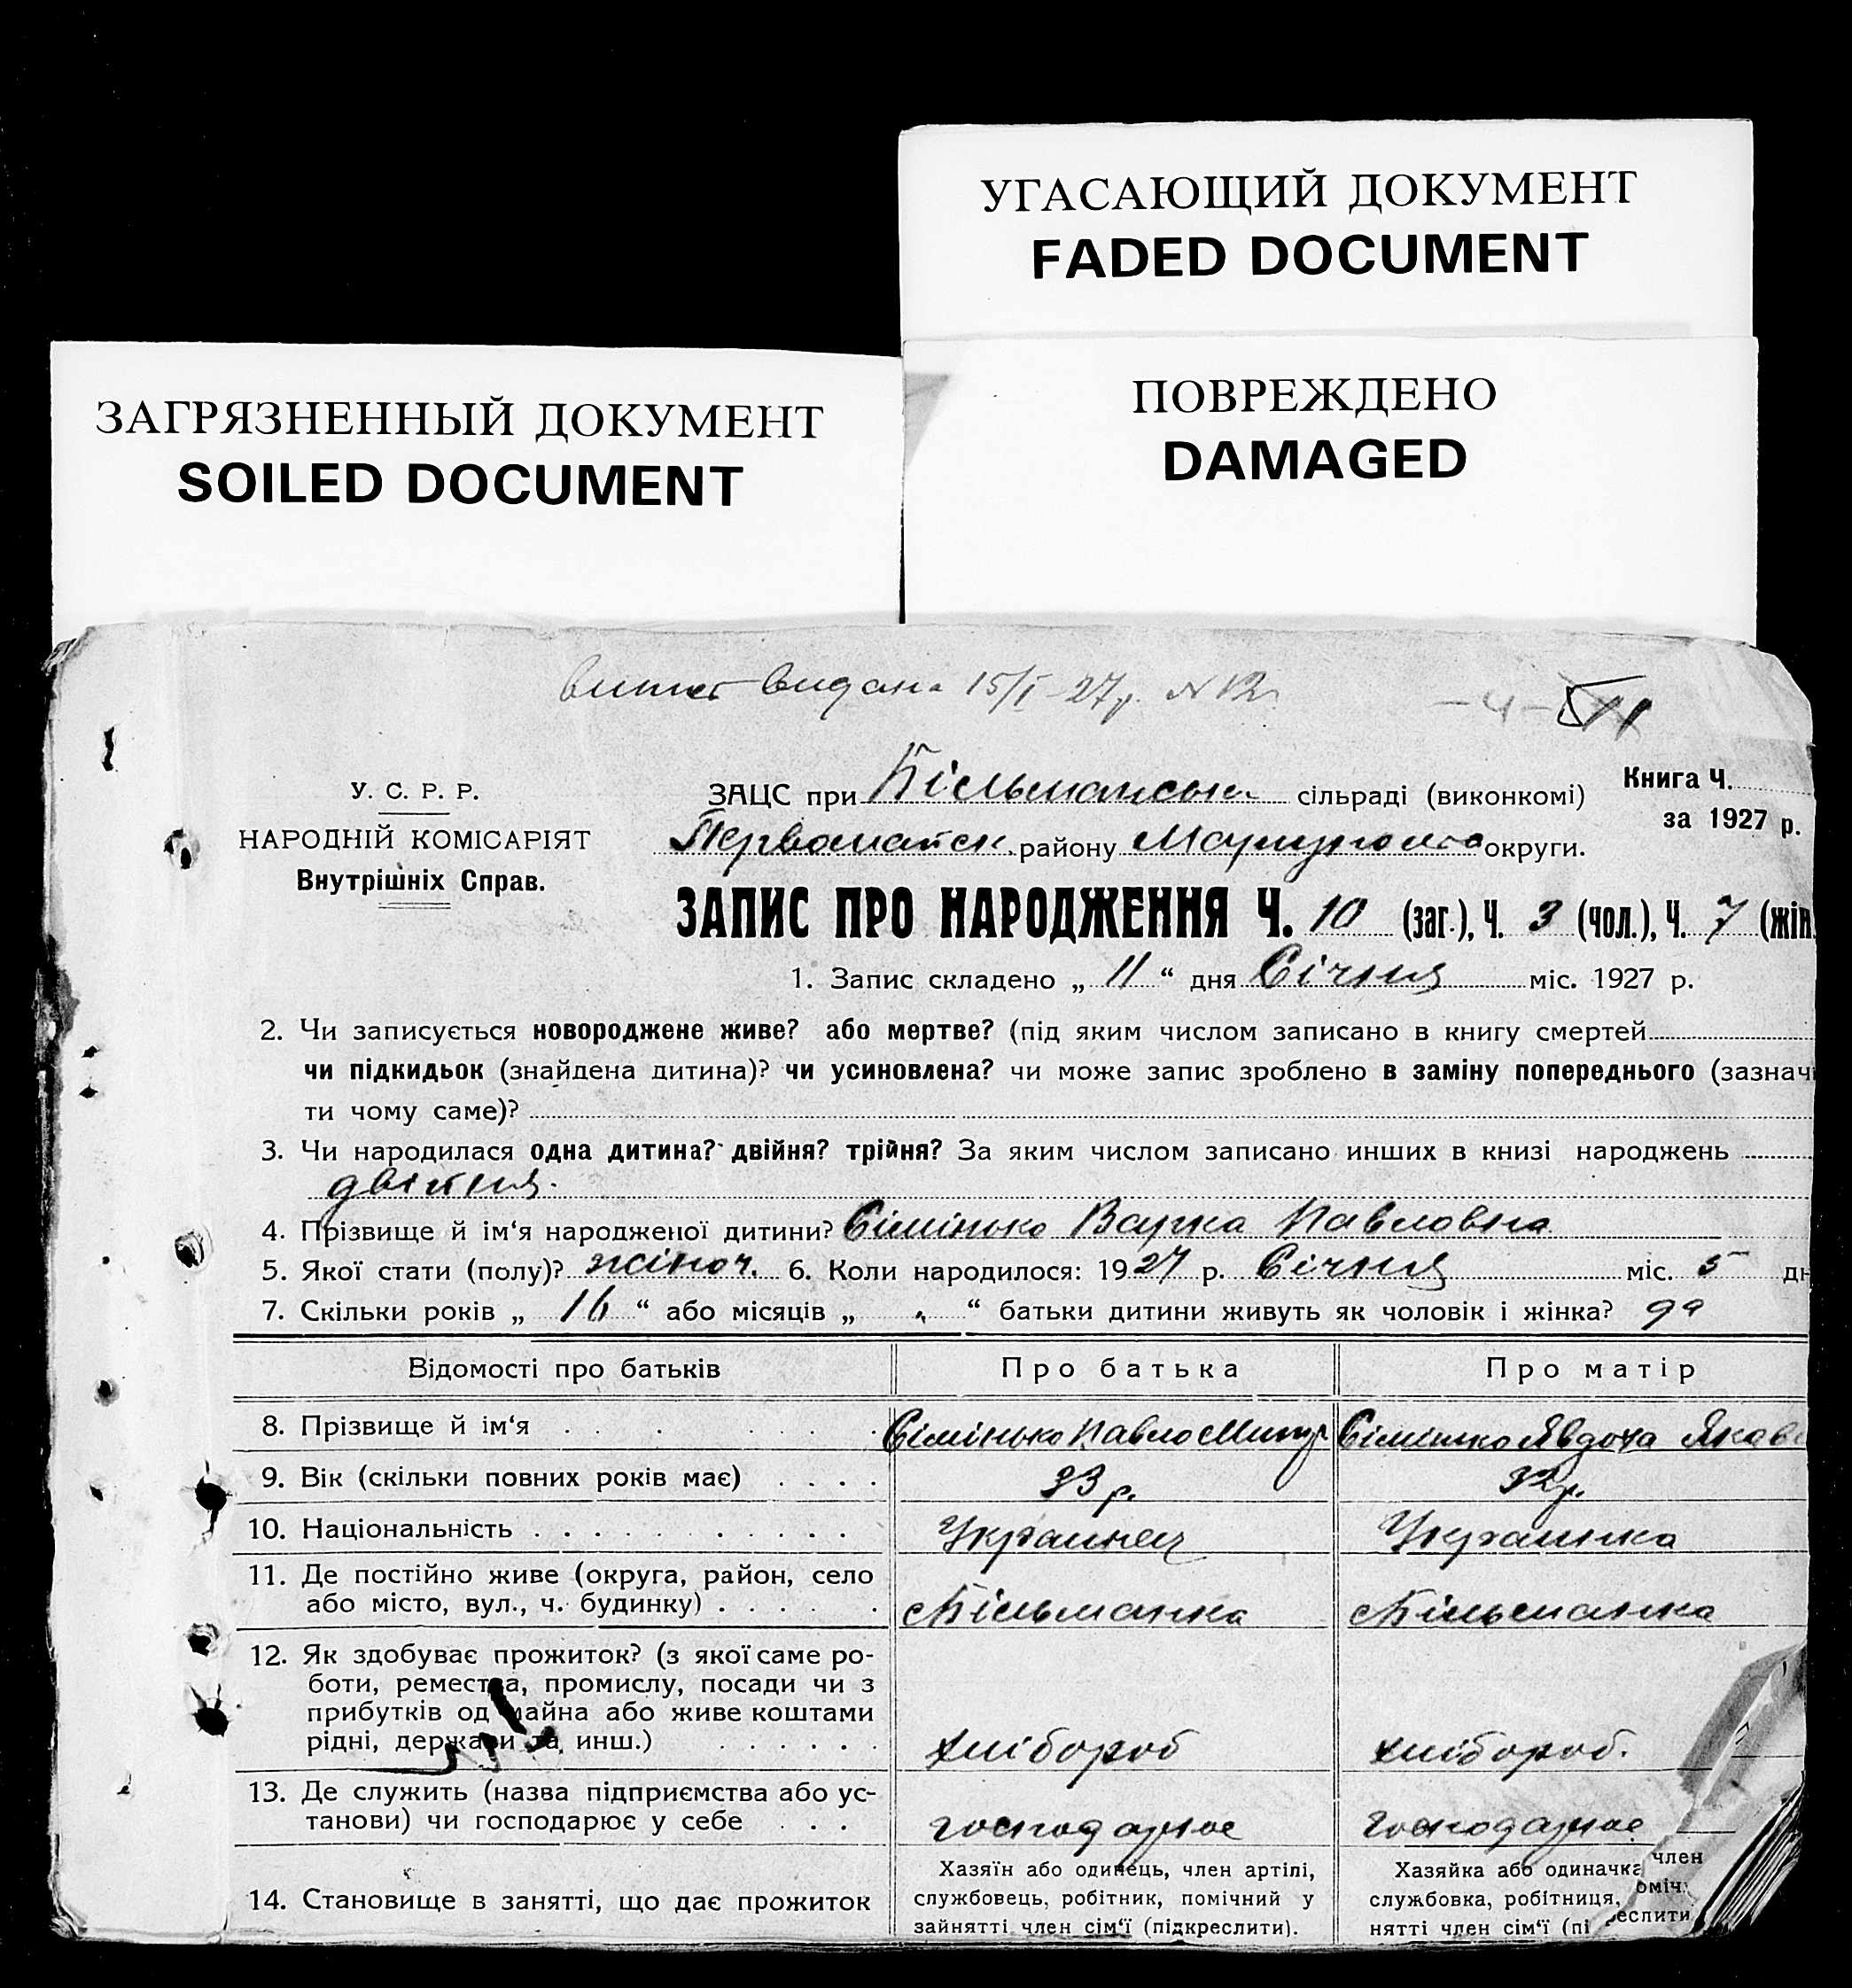 УГАСАЮЩИЙ ДОКУМЕНТ
FADED DOCUMENT
ЗАГРЯЗНЕННЫЙ ДОКУМЕНТ
SOILED DOCUMENT
ПОВРЕЖДЕНО
DAMAGED
видана 15/I-27р. N 12
У. С. Р. Р.
НАРОДНІЙ КОМІСАРІЯТ
Внутрішніх Справ.
Книга Ч.
за 1927 р.
ЗАЦС при Кільманськ сільраді (виконкомі)
Первомайськ. району округи.
ЗАПИС ПРО НАРОДЖЕННЯ Ч. 10 (заг.), Ч. 3 (чол.), Ч. 7 (жін
1. Запис складено „ 11 “ дня Січня міс. 1927 р.
2. Чи записується новороджене живе? або мертве? (під яким числом записано в книгу смертей
чи підкидьок (знайдена дитина)? чи усиновлена? чи може запис зроблено в заміну попереднього (зазначи
ти чому саме)?
3. Чи народилася одна дитина? двійня? трійня? За яким числом записано инших в книзі народжень
двійня.
4. Прізвище й ім‘я народженої дитини? Сімінько Варка Павловна
5. Якої стати (полу)? жіноч. 6. Коли народилося: 1927 р. Січня міс. 5 дн
7. Скільки років „ 16 “ або місяців „ “ батьки дитини живуть як чоловік і жінка? да
Відомості про батьків Про батька Про матір
8. Прізвище й ім‘я Сімінько Павло Сімінько Явдоха Яковл
9. Вік (скільки повних років має) 33 р. 32 р.
10. Національність Украинец Украинка
11. Де постійно живе (округа, район, село
або місто, вул., ч. будинку) Кільманка Кільманка
12. Як здобуває прожиток? (з якої саме ро-
боти, ремества, промислу, посади чи з
прибутків од майна або живе коштами
рідні, держави та инш.) хлібороб хлібороб.
13. Де служить (назва підприємства або ус-
танови) чи господарює у себе господарює господарює
14. Становище в занятті, що дає прожиток
Хазяїн або одинець, член артілі,
службовець, робітник, помічний у
зайнятті член сім‘ї (підкреслити).
Хазяйка або одиначка член
службовка, робітниця, поміч
нятті член сім‘ї (пі реслити